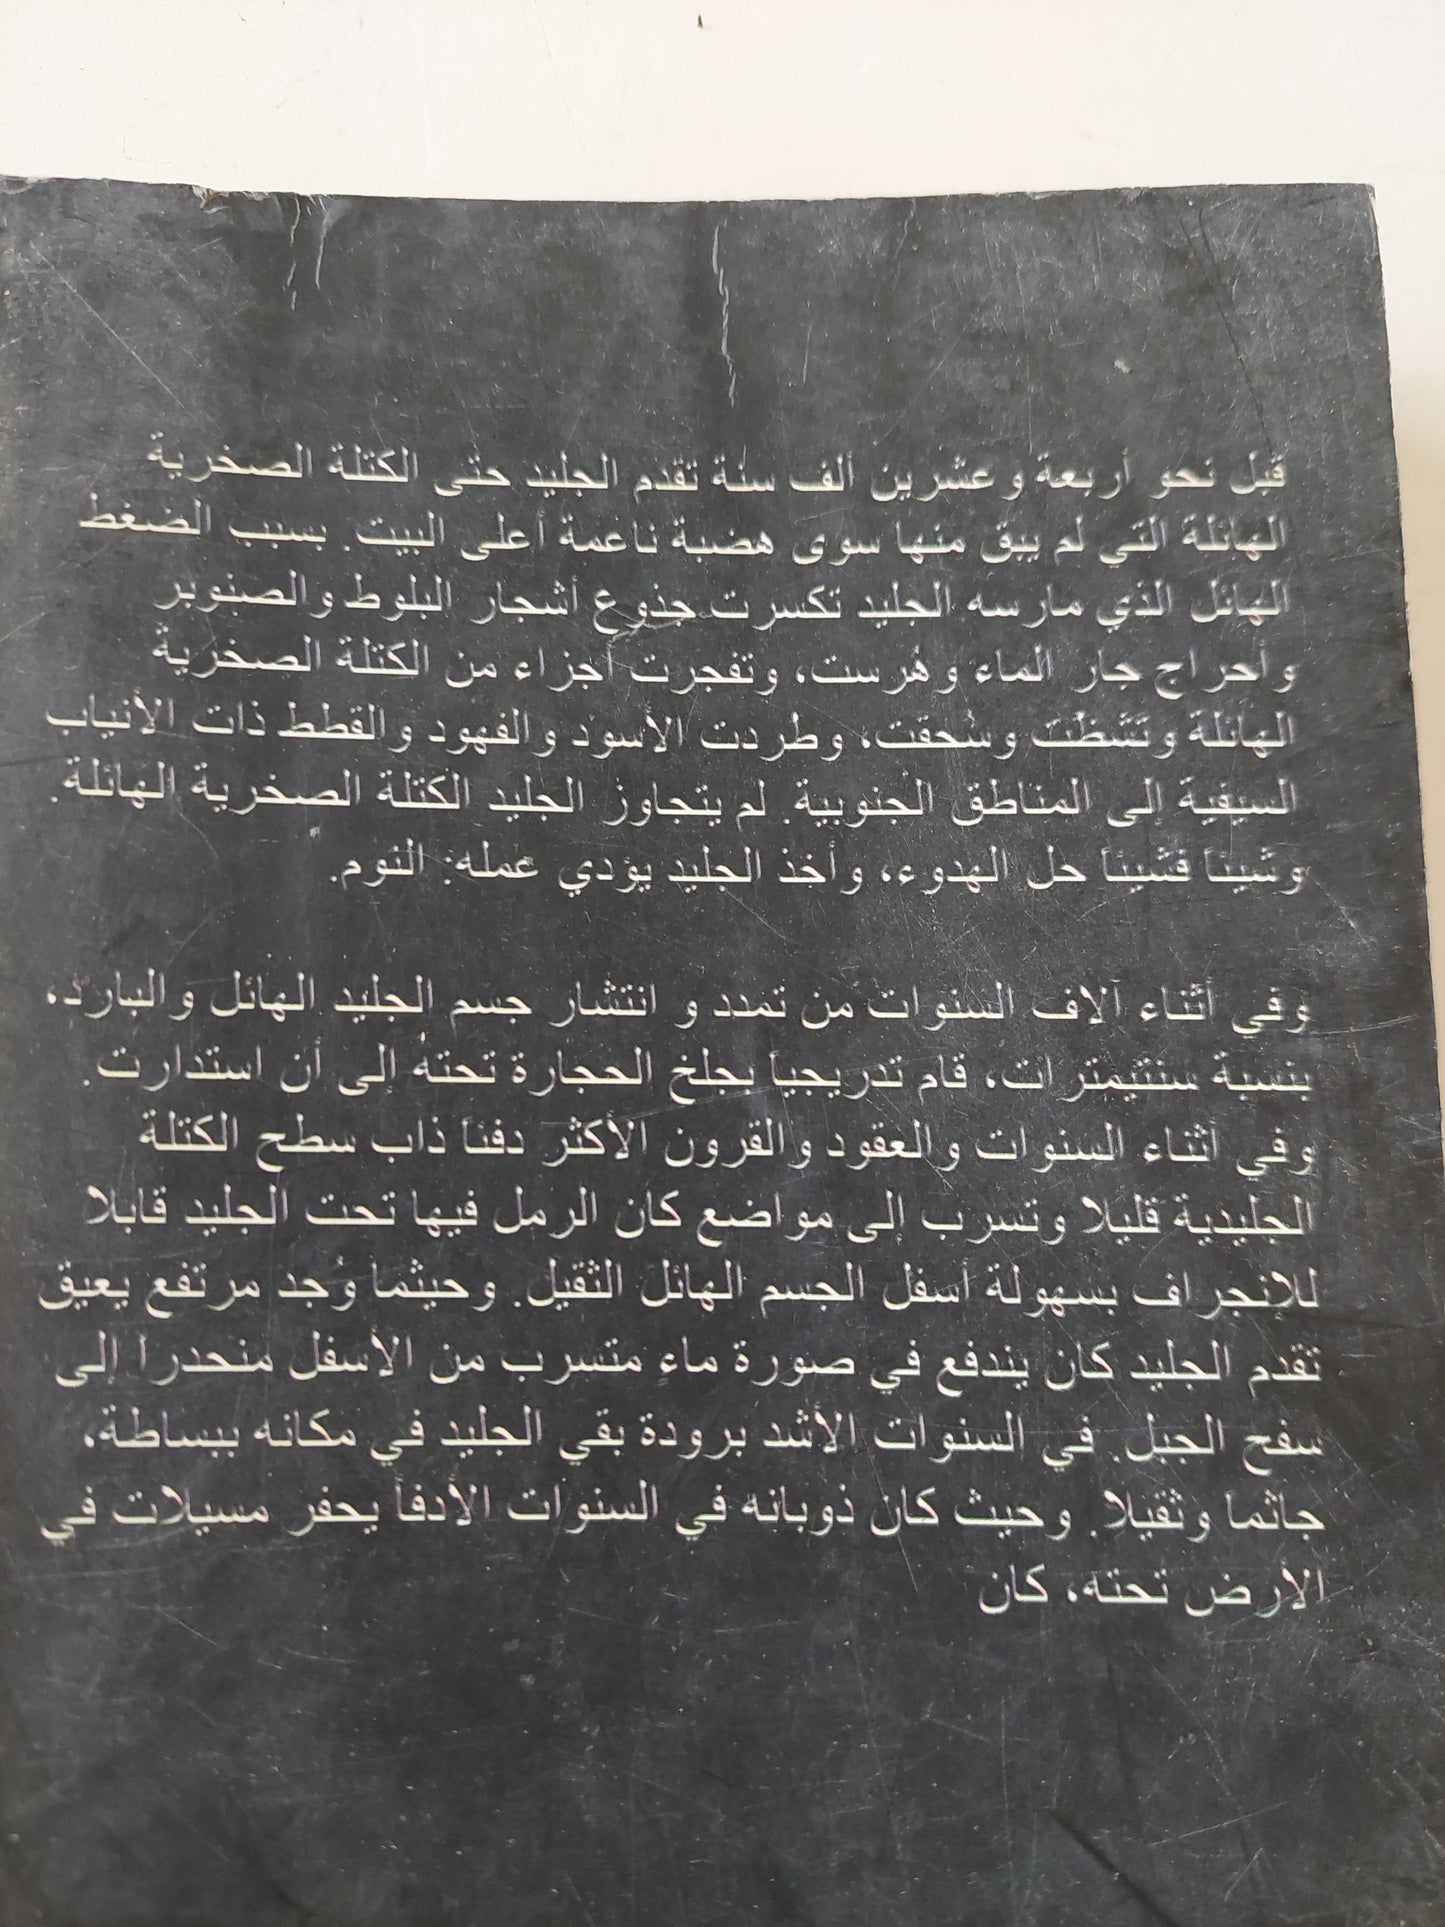 قبل نحو أربعة وعشرين ألف سنة تقدم الجليد حتى الكتلة الصخرية
الهائلة التي لم يبق منها سوى هضبة ناعمة أعلى البيت. بسبب الضغط
الهائل الذي مارسه الجليد تكسرت جذوع أشجار البلوط والصنوبر
وأحراج جار الماء وهُرست، وتفجرت أجزاء من الكتلة الصخرية
الهائلة وتشظت وسُحقت، وطردت الأسود والفهود والقطط ذات الأنياب
السيفية إلى المناطق الجنوبية. لم يتجاوز الجليد الكتلة الصخرية الهائلة.
وشيئاً فشيئاً حل الهدوء، وأخذ الجليد يؤدي عمله: النوم.
وفي أثناء آلاف السنوات من تمدد و انتشار جسم الجليد الهائل والبارد،
بنسبة سنتيمترات، قام تدريجياً بجلخ الحجارة تحته إلى أن استدارت.
وفي أثناء السنوات والعقود والقرون الأكثر دفئاً ذاب سطح الكتلة
الجليدية قليلا وتسرب إلى مواضع كان الرمل فيها تحت الجليد قابلا
للإنجراف بسهولة أسفل الجسم الهائل الثقيل. وحيثما وُجد مرتفع يعيق
تقدم الجليد كان يندفع في صورة ماء متسرب من الأسفل منحدراً إلى
سفح الجبل. في السنوات الأشد برودة بقي الجليد في مكانه ببساطة،
جاثما وثقيلا. وحيث كان ذوبانه في السنوات الأدفأ يحفر مسيلات في
الأرض تحته، كان